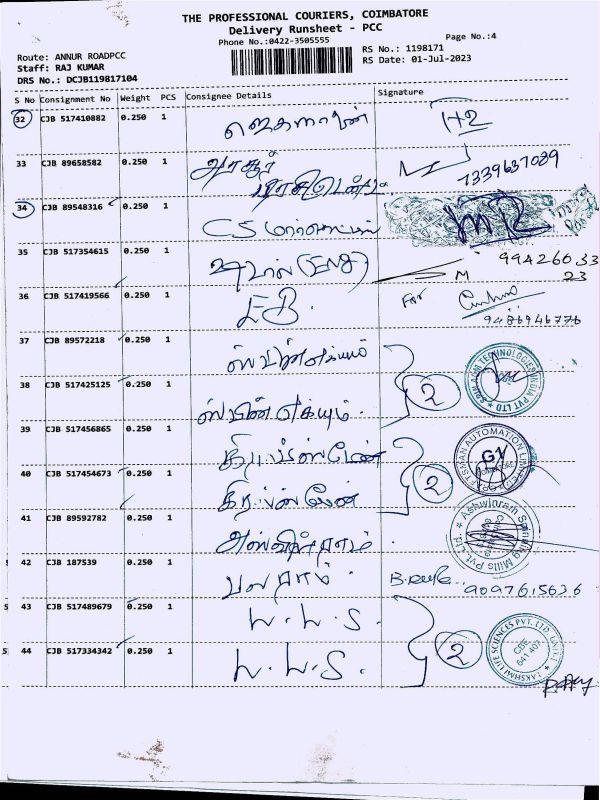 THE PROFESSIONAL COURIERS, COIMBATORE
Delivery Runsheet - PCC
Phone No.:0422-3505555
Page No.:4
Route: ANNUR ROADPCC
Staff: RAJ KUMAR
DRS No.: DCJB119817104
RS No.: 1198171
RS Date: 01-Jul-2023
S No Consignment No Weight PCS Consignee Details Signature
32 CJB 517410882 0.250 1 ஜெகநாதன் H2
33 CJB 89658582 0.250 1 அரசூர் 7339637089
34 CJB 89548316 0.250 1 CS MR
35 CJB 517354615 0.250 1 M 99426033
23
36 CJB 517419566 0.250 1 EB. For
9486946776
37 CJB 89572218 0.250 1
38 CJB 517425125 0.250 1 2
39 CJB 517456865 0.250 1
40 CJB 517454673 0.250 1 2
41 CJB 89592782 0.250 1 அஸ்வின்ராம். Ashwinram Spinning Mills Pvt. Ltd.
42 CJB 187539 0.250 1 பலராம். 9097615636
43 CJB 517489679 0.250 1 L. L. S.
44 CJB 517334342 0.250 1 L. L. S. 2 LAKSHMI LIFE SCIENCES PVT. LTD. CBE 641 407